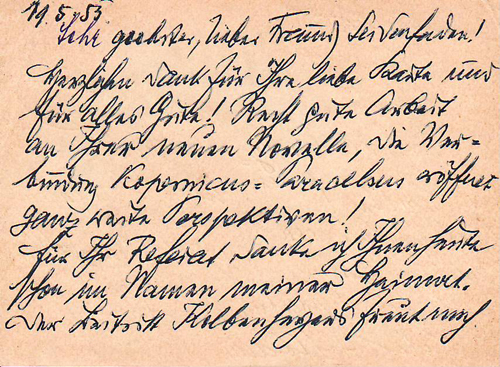 19.5.53
Sehr geehrter, lieber Freund Seidenfaden!
Herzlichen Dank für Ihre liebe Karte und
für alles Gute! Recht gute Arbeit
an Ihrer neuen Novelle, die Ver-
bindung Kopernicus-Paracelsus eröffnet
ganz weite Perspektiven!
Für Ihr Referat danke ich Ihnen heute
schon im Namen meiner Heimat.
Der Beitritt Kolbenheyers freut mich